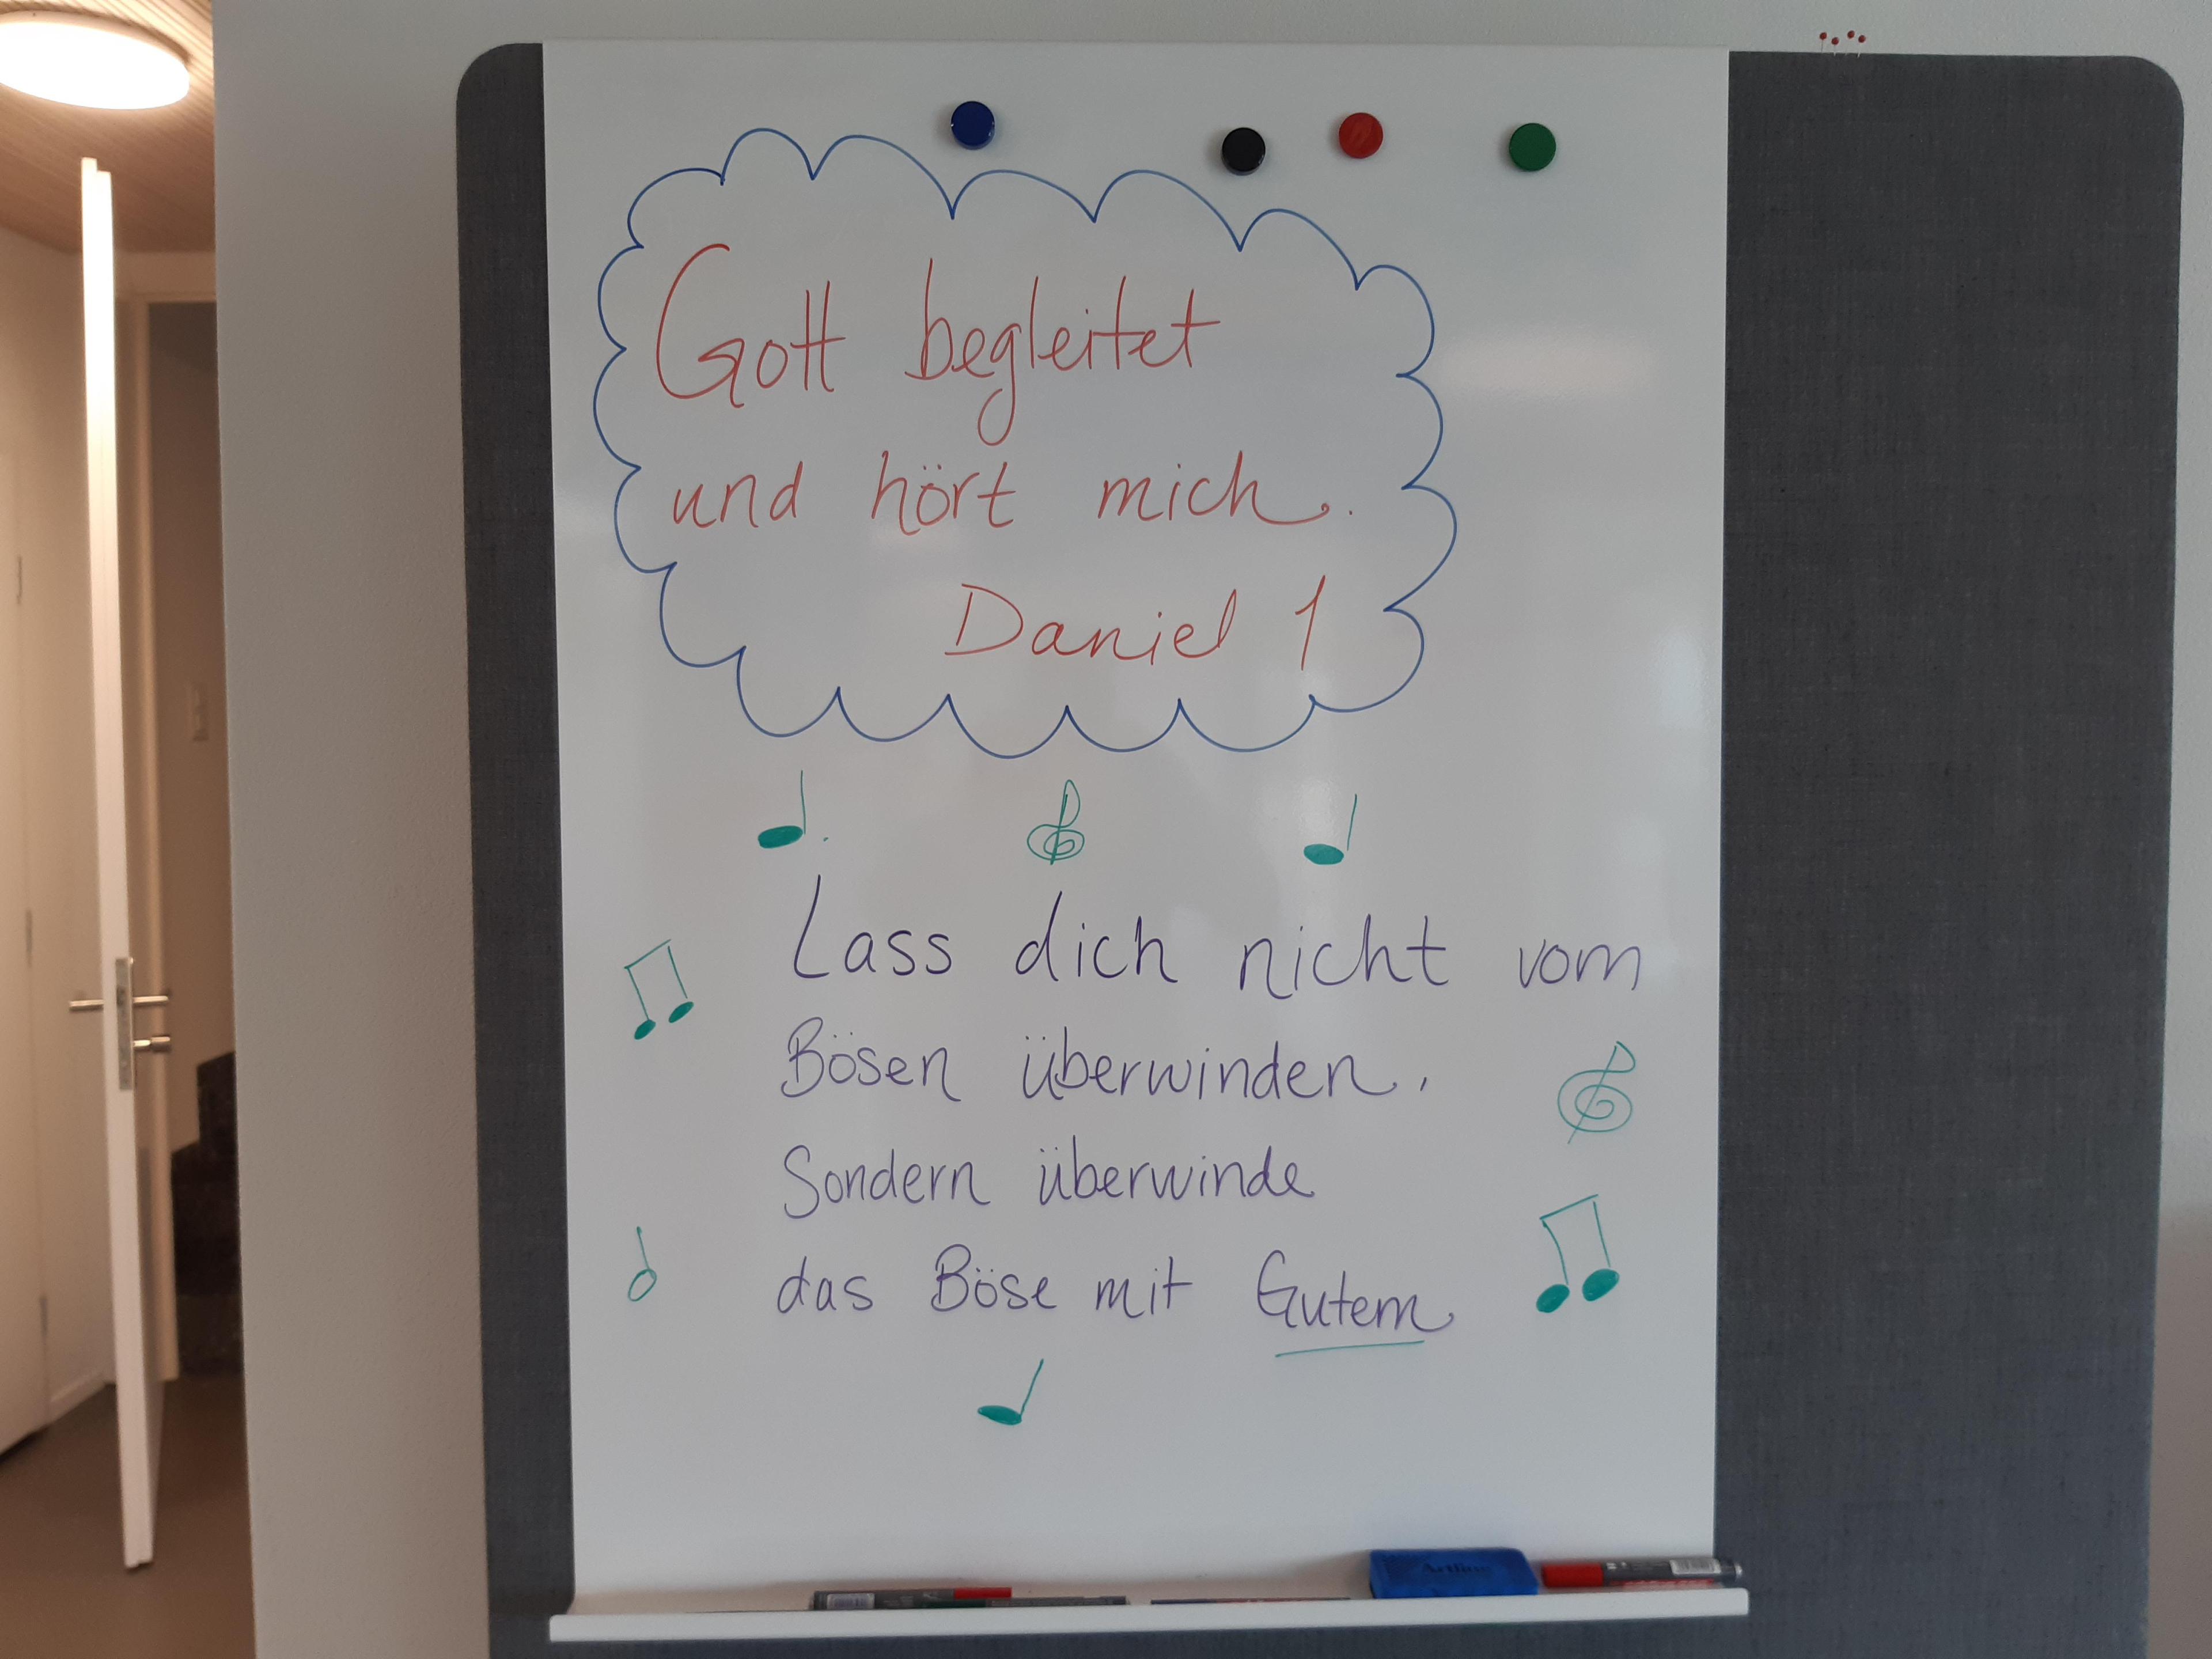 Gott begleitet
und hört mich.
Daniel 1
Lass dich nicht vom
Bösen überwinden,
Sondern überwinde
das Böse mit Gutem
Artline